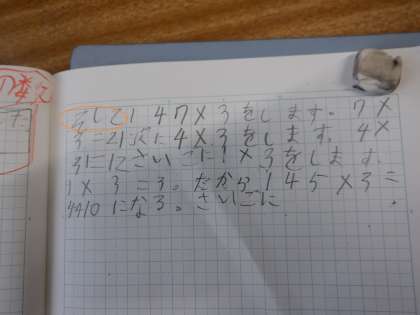 の考え
そして147×3をします。7×
3=21次に4×3をします。4×
3=12さいごに1×3をします。
1×3=3。だから145×3=
4410になる。さいごに